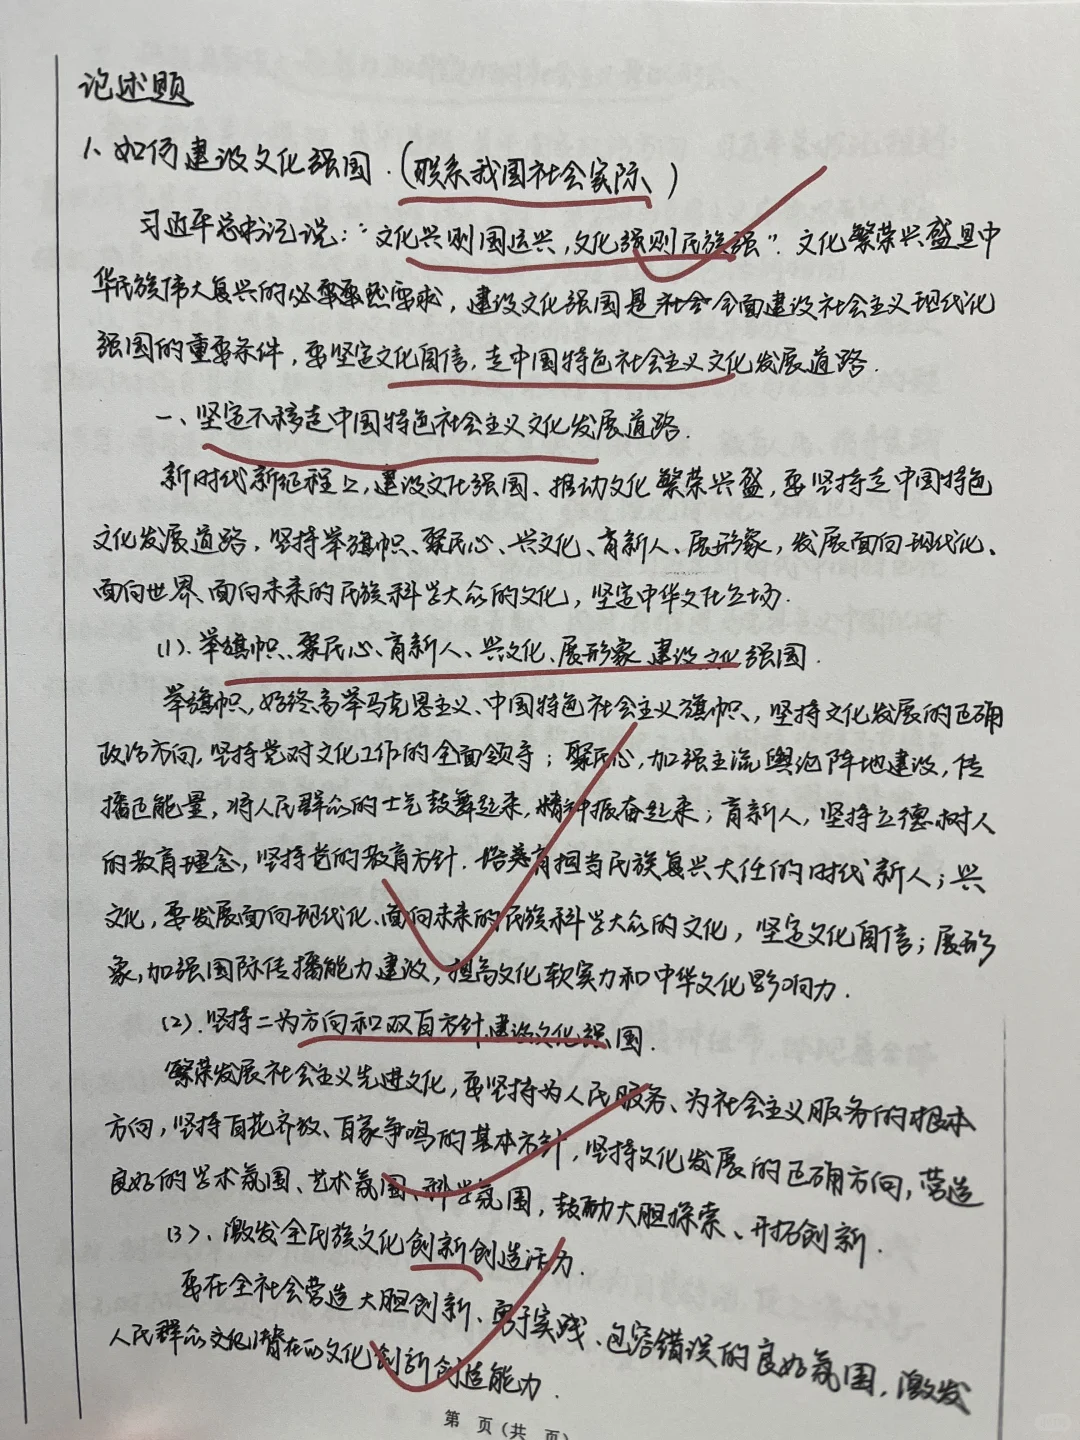 论述题
1、如何建设文化强国.(联系我国社会实际)
习近平总书记说:“文化兴则国运兴,文化强则民族强”.文化繁荣兴盛是中
华民族伟大复兴的必然要求,建设文化强国是全面建设社会主义现代化
强国的重要条件,要坚定文化自信,走中国特色社会主义文化发展道路.
一、坚定不移走中国特色社会主义文化发展道路.
新时代新征程上,建设文化强国、推动文化繁荣兴盛,要坚持走中国特色
文化发展道路,坚持举旗帜、聚民心、兴文化、育新人、展形象,发展面向现代化、
面向世界、面向未来的民族科学大众的文化,坚定中华文化立场.
(1).举旗帜、聚民心、育新人、兴文化、展形象建设文化强国.
举旗帜,始终高举马克思主义、中国特色社会主义旗帜,坚持文化发展的正确
政治方向,坚持党对文化工作的全面领导;聚民心,加强主流舆论阵地建设,传
播正能量,将人民群众的士气鼓舞起来,精神振奋起来;育新人,坚持立德树人
的教育理念,坚持党的教育方针.培养育担当民族复兴大任的时代新人;兴
文化,要发展面向现代化、面向未来的民族科学大众的文化,坚定文化自信;展形
象,加强国际传播能力建设,提高文化软实力和中华文化影响力.
(2).坚持二为方向和双百方针建设文化强国.
繁荣发展社会主义先进文化,要坚持为人民服务、为社会主义服务的根本
方向,坚持百花齐放、百家争鸣的基本方针,坚持文化发展的正确方向,营造
良好的学术氛围、艺术氛围、科学氛围,鼓励大胆探索、开拓创新.
(3)、激发全民族文化创新创造活力.
要在全社会营造大胆创新、勇于实践、包容错误的良好氛围,激发
人民群众文化潜在的文化创新创造能力.
第 页(共 页)